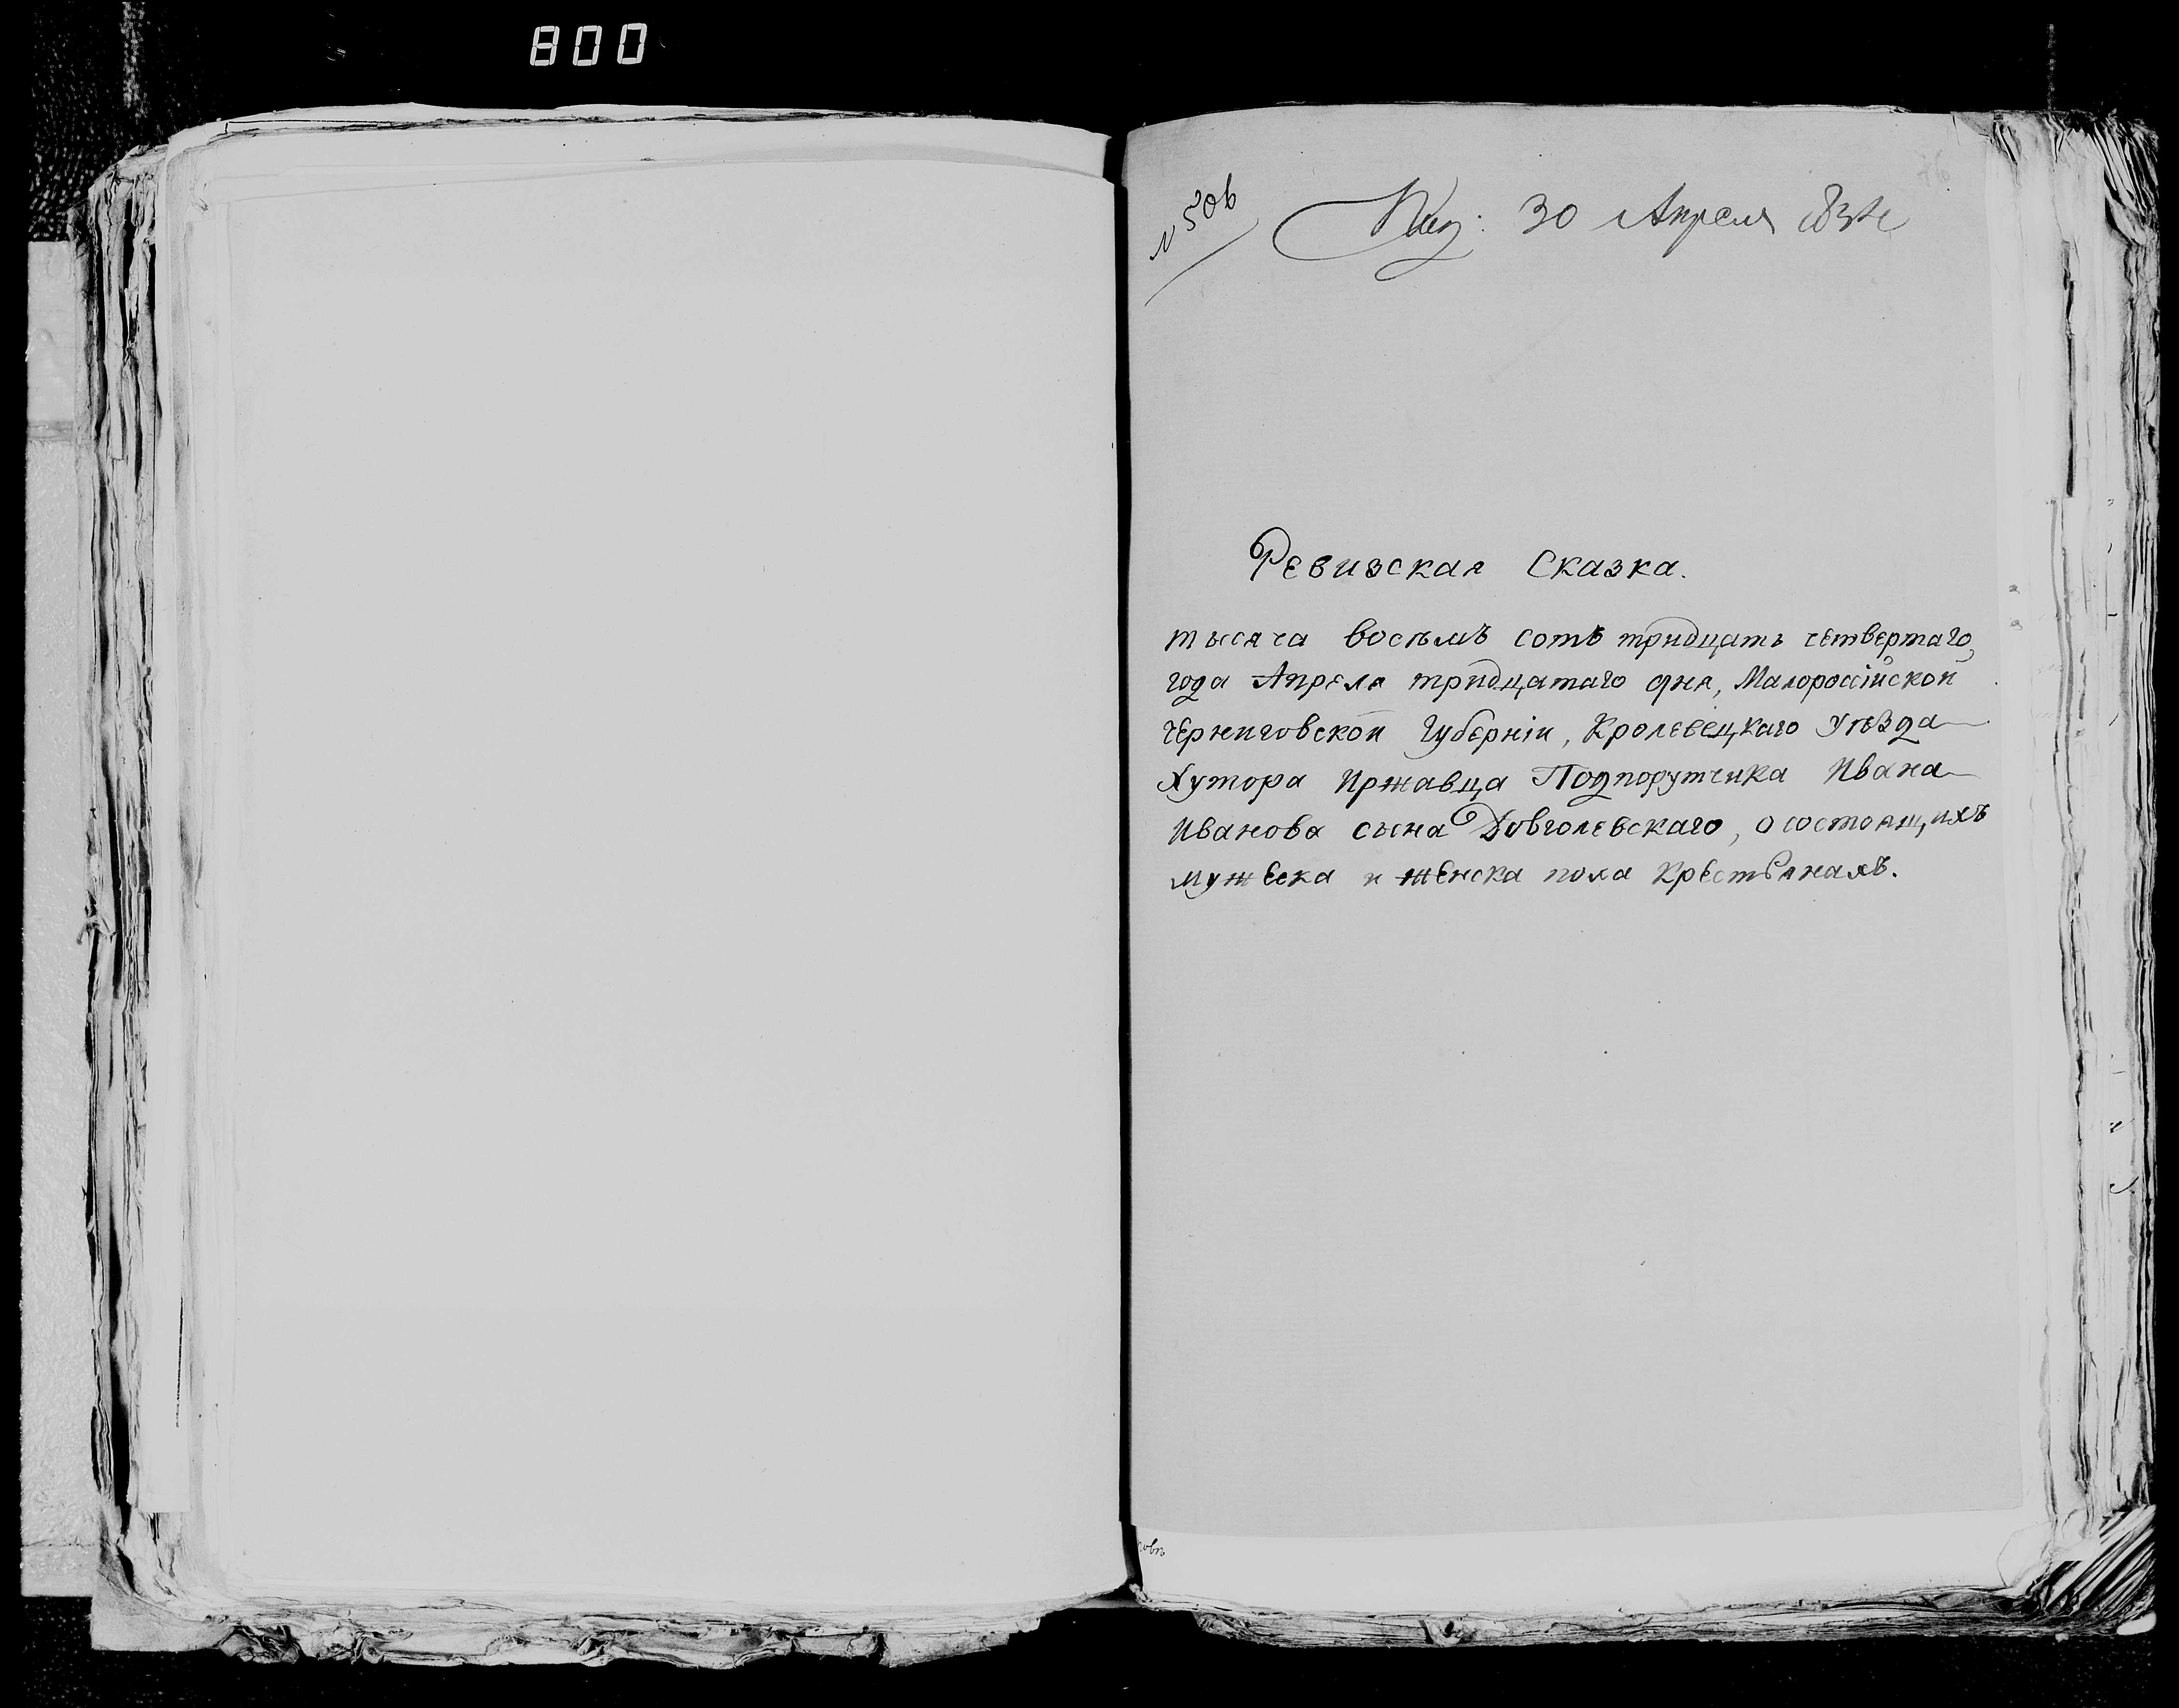 800
N 506
Под: 30 Апреля 1834
Ревизская Сказка.
тысяча восѣмъ сотъ тридцать четвертаго,
года Апреля тридцатаго дня, Малороссійской
черниговской Губерніи, Кролевецкаго уѣзда
Хутора Иржавца Подпорутчика Ивана
Иванова сына Довголевскаго, о состоящихъ
мужеска и женска пола крестьянахъ.